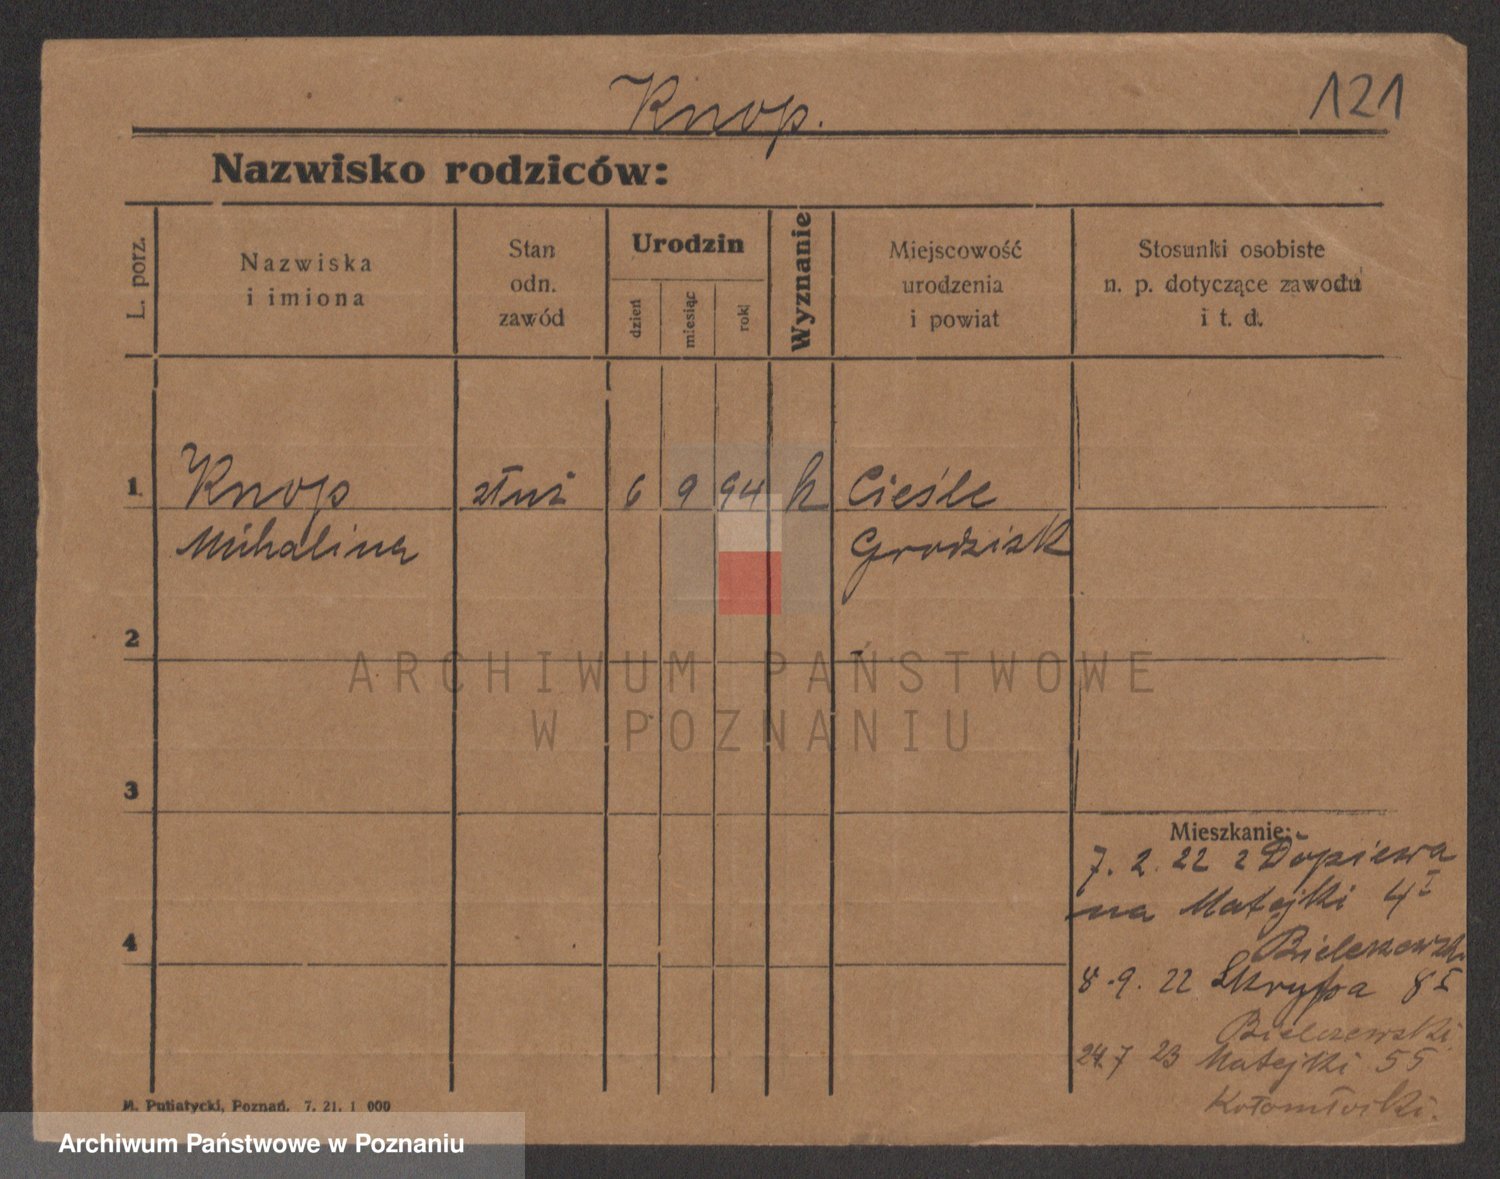 Knop.
121
Nazwisko rodziców:
L. porz.
Nazwiska
i imiona
Stan
odn.
zawód
Urodzin
dzień
miesiąc
rok
Wyznanie
Miejscowość
urodzenia
i powiat
Stosunki osobiste
n. p. dotyczące zawodu
i t. d.
1 Knop służ 6 9 94 k Cieśle
Mihalina Grodzisk
2
ARCHIWUM PAŃSTWOWE
W POZNANIU
3
Mieszkanie:
7. 2. 22 z Dopiewa
na Matejki 4 I
4
Bielerzewski
8. 9. 22 Skryta 8 I
Bielerzewski
24. 7 23 Matejki 55
M. Putiatycki, Poznań. 7. 21. 1 000
Archiwum Państwowe w Poznaniu